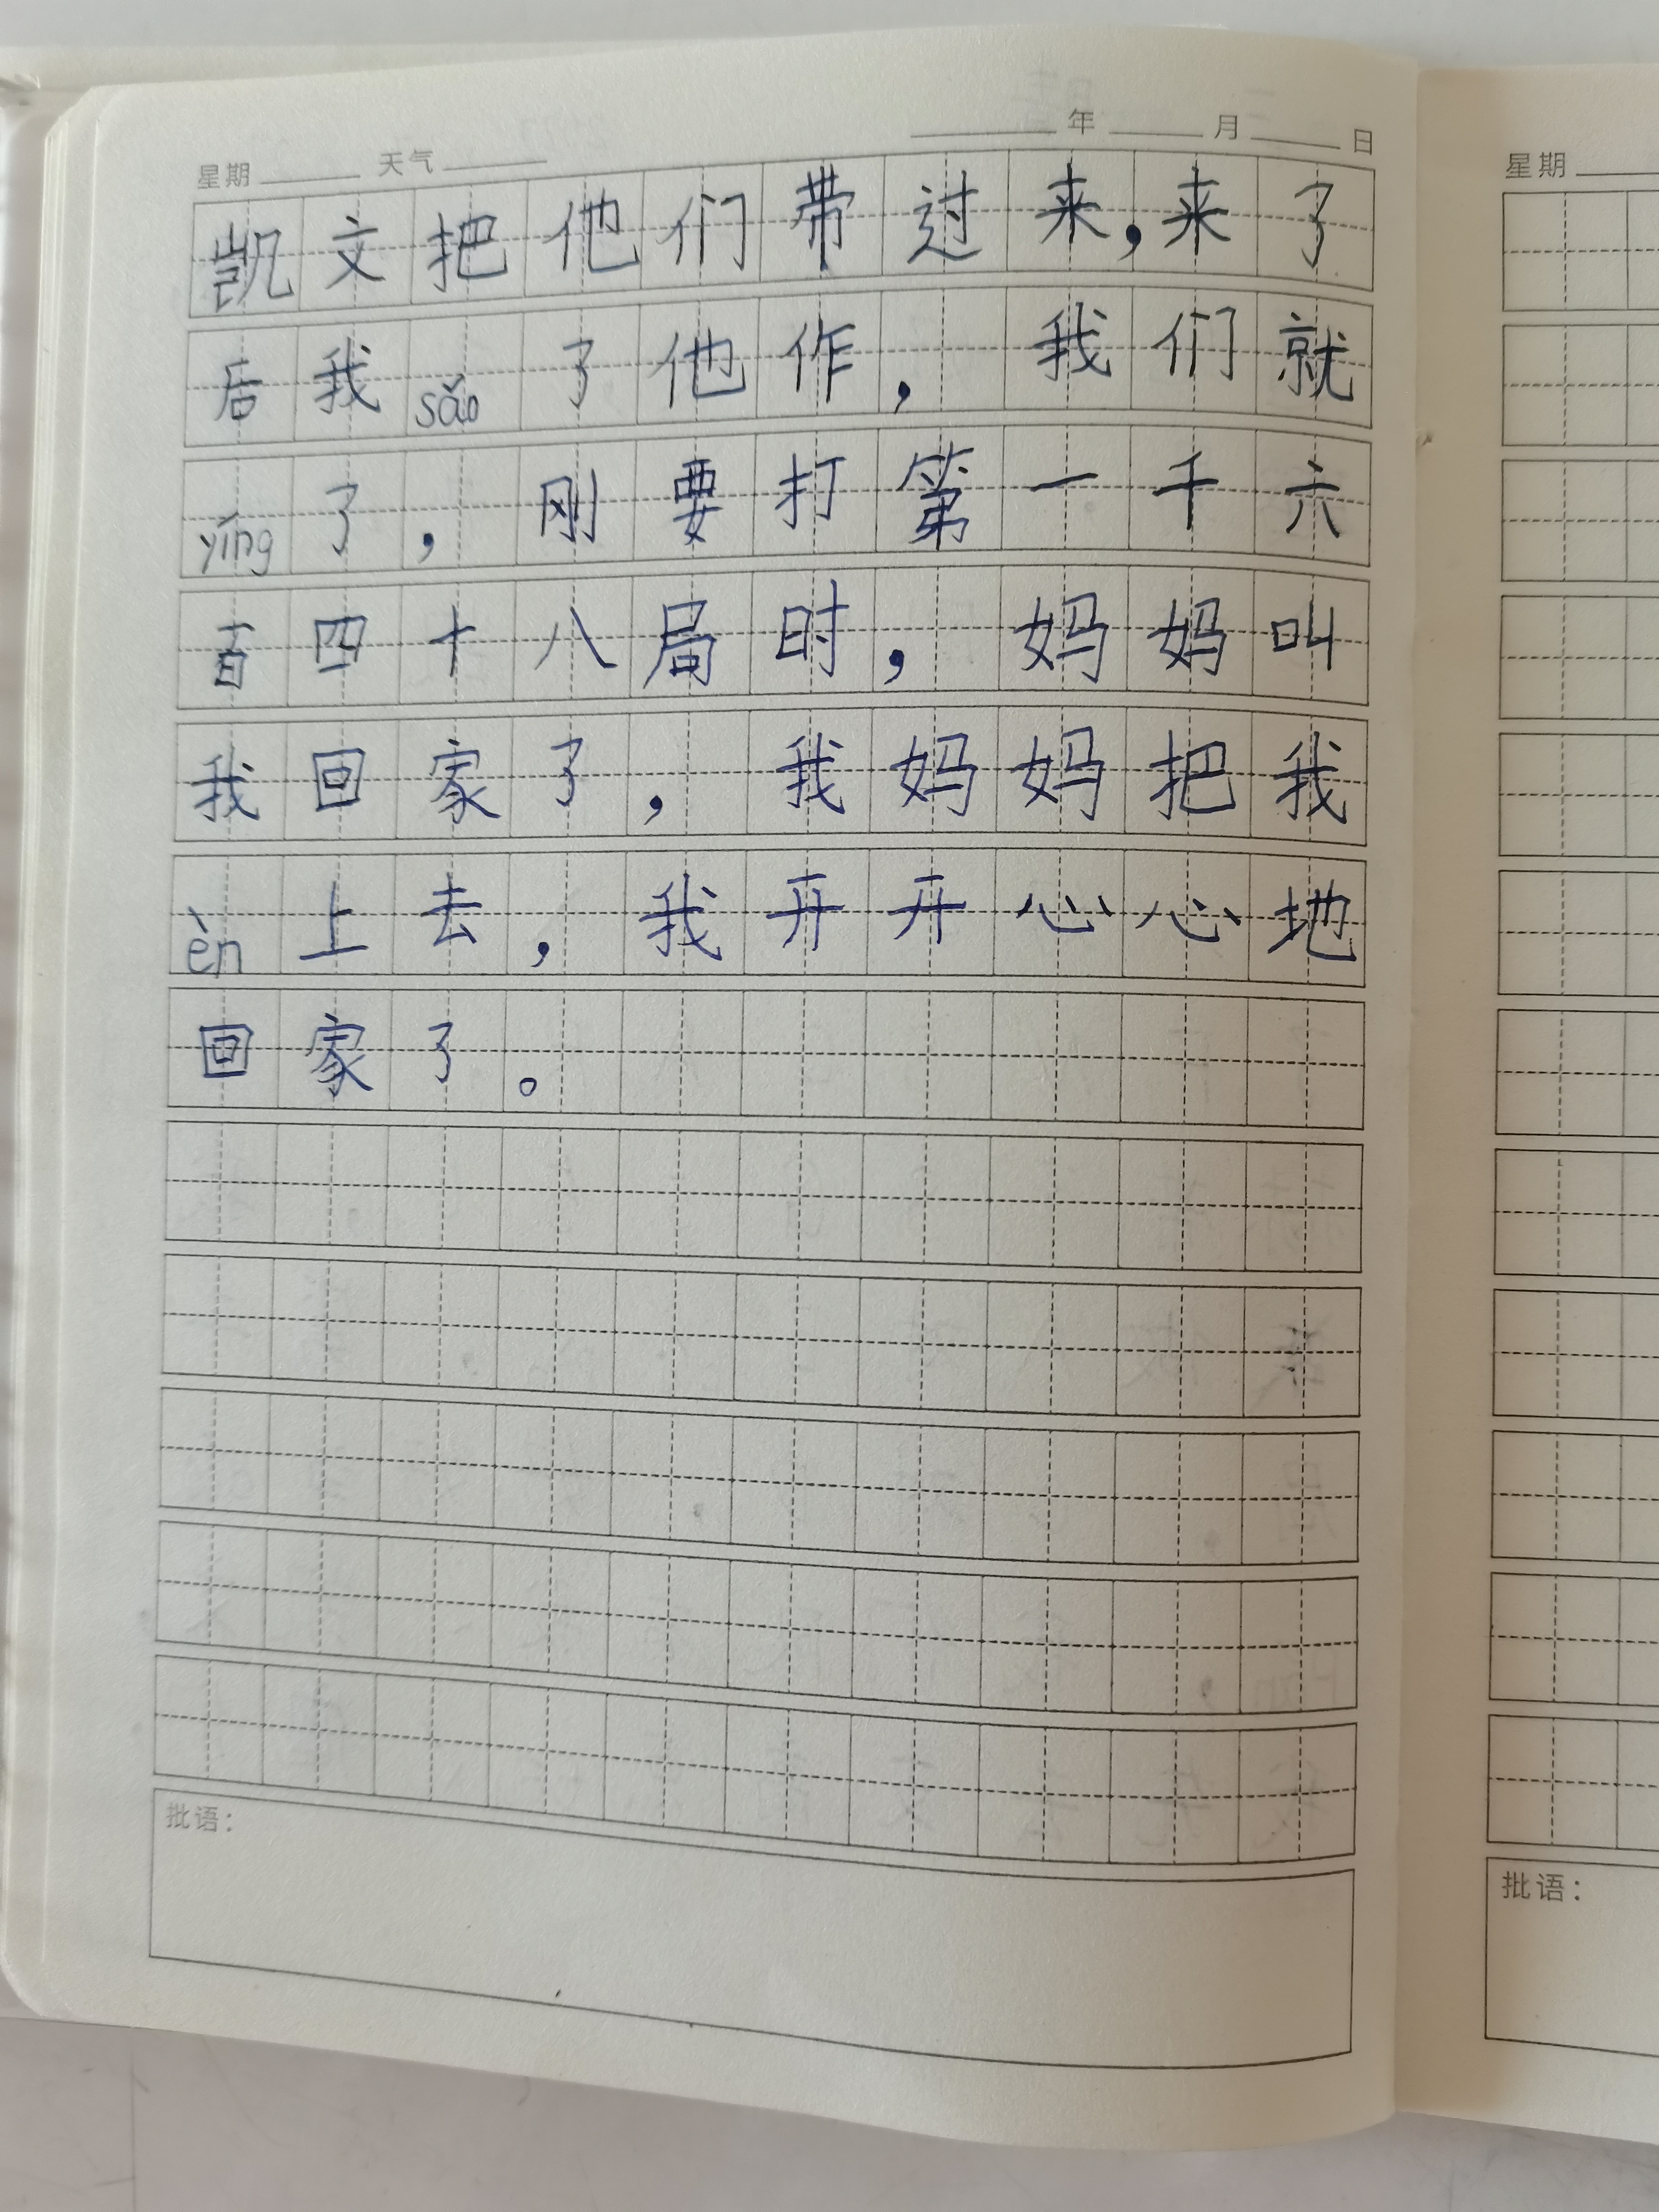 年 月 日
星期 天气
凯文把他们带过来,来了
后我sǎo了他作,我们就
yíng了,刚要打第一千六
百四十八局时,妈妈叫
我回家了,我妈妈把我
èn上去,我开开心心地
回家了。
批语:
星期
批语: